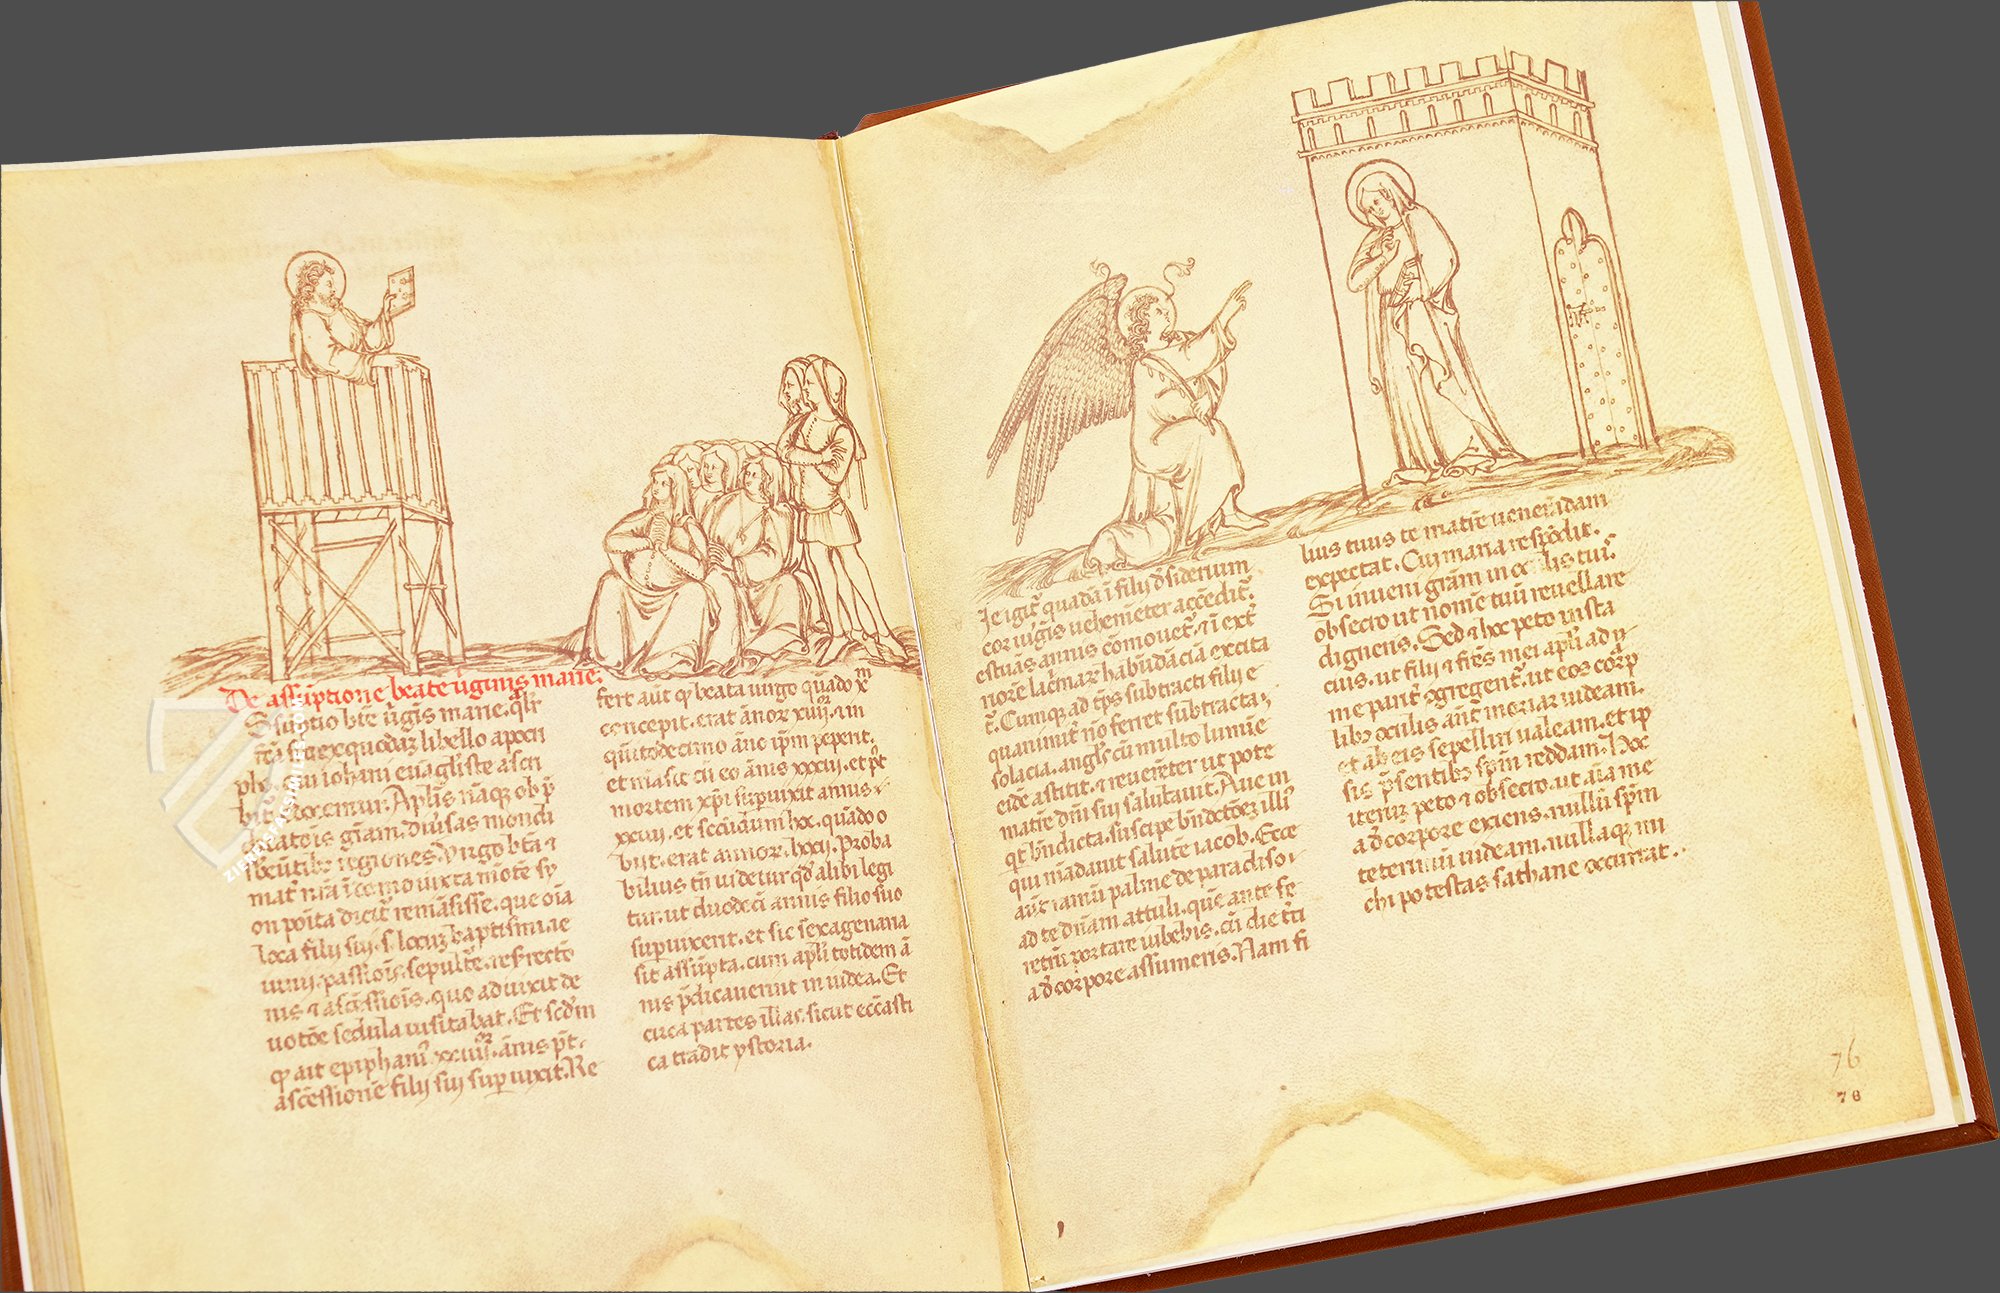 De assūptione beate ūginis marie.
Sūptio btē ūgīs marie. qlr
fcā sit ex quodaz libello apocri
pho. qui iohani euāgliste ascri
bit. docemur. Aplis nāq ob p
dicatōis grām. diūsas mondi
sbeūtibz regiones. ūrgo btā ⁊
mat nrā ī domo iuxta mōtē sy
on poīta dicit remāsisse. que oīa
loca filii sui. s. locuz baptismi. ie
iunii. passiois. sepultē. resrectō
nis ⁊ ascēssiois. quo aduixit de
uotōe sedula uisitabat. Et scdm
q ait epiphani xxiiii. ānis pt.
ascēssionē filii sui supuixit. Re
fert aūt q beata uirgo quādo xm
concepit. erat ānor xiiii. ⁊ in
quītodecimo āno ipm peperit.
et māsit cū eo ānis xxxiii. et pt
mortem xpi supuixit annis
xxiiii. et secūdum hoc. quādo o
biit. erat annor. lxxii. Proba
bilius tn uidetur qd alibi legi
tur. ut duodeci annis filio suo
supuixerit. et sic sexagenaria
sit assūpta. cum apli totidem ā
nis pdicauerint in iudea. Et
circa partes illas. sicut eccāsti
ca tradit ystoria.
ie igit quadā ī filii dsiderium
cor uirgis uehemēter accēdit.
estuās animus cōmouet. ⁊ ī ext
riorē lacrimar habūdāciā excita
t. Cumq ad tps subtracti filii e
quanimit nō ferret subtracta
solacia. angls cū multo lumīe
eidē astitit. ⁊ reuerēter ut pote
matrē dni sui salutauit. Aue in
qt bndicta. suscipe bndctōez illi
qui mādauit salutē iacob. Ecce
aūt ramū palme de paradiso
ad te dnam attuli. quē ante fe
retrū portare iubebis. cū die tcī
a d corpore assumeris. Nam fi
lius tuus te matrē uenerādam
expectat. Cui maria respōdit.
Si inueni grām in oculis tuis.
obsecro ut nomē tuū reuellare
digneris. Sed ⁊ hoc peto iusta
cius. ut filii ⁊ frēs mei apli ad
me parit ɔgregent. ut eos corp
libz oculis ant moriar uideam.
et ab eis sepelliri ualeam. et ip
sis psentibz spm reddam. Hoc
iteruz peto ⁊ obsecro. ut aīa me
a d corpore exiens. nullū spm
teterrimū uideam. nullaq mi
chi potestas sathane occurrat.
76
76